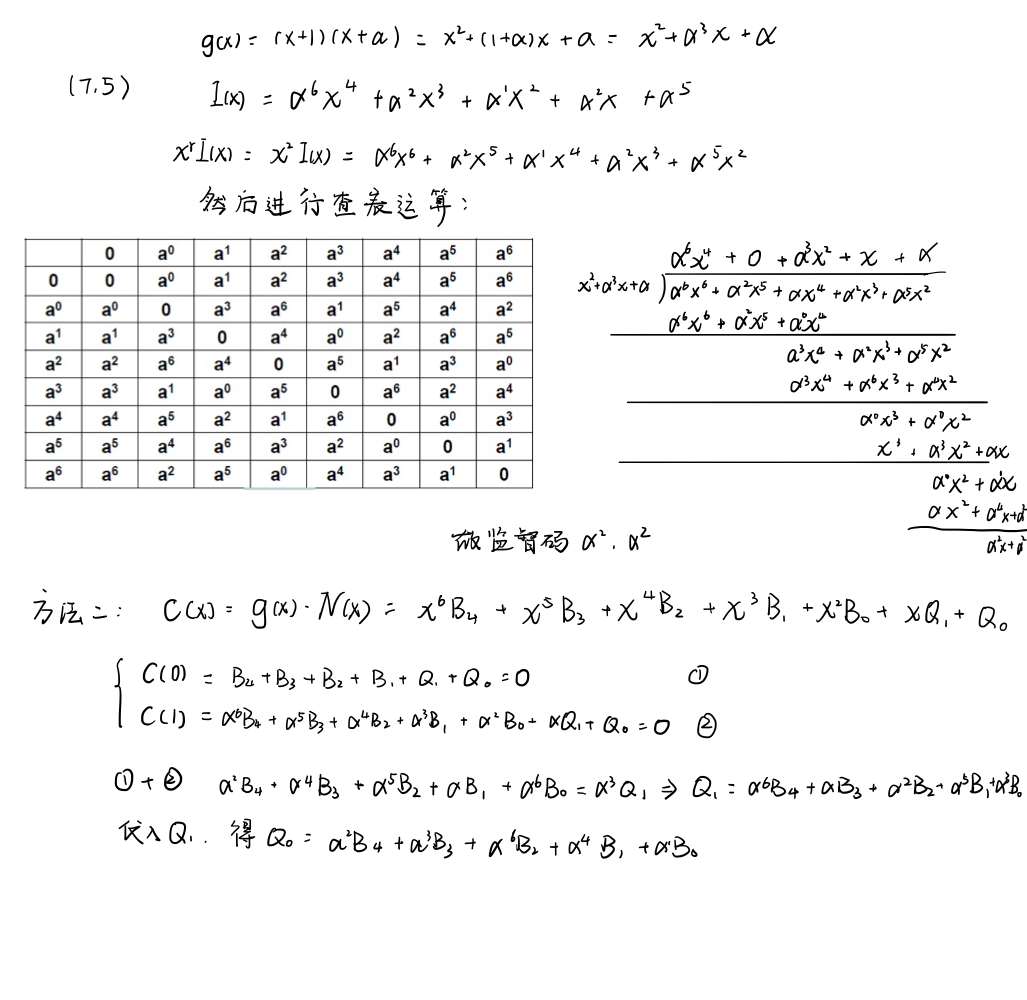 g(x) = (x+1)(x+α) = x²+(1+α)x+α = x²+α³x+α
(7,5) I(x) = α⁶x⁴ + α²x³ + α¹x² + α²x + α⁵
xʳI(x) = x²I(x) = α⁶x⁶ + α²x⁵ + α¹x⁴ + α²x³ + α⁵x²
然后进行查表运算:
0 a⁰ a¹ a² a³ a⁴ a⁵ a⁶
0 0 a⁰ a¹ a² a³ a⁴ a⁵ a⁶
a⁰ a⁰ 0 a³ a⁶ a¹ a⁵ a⁴ a²
a¹ a¹ a³ 0 a⁴ a⁰ a² a⁶ a⁵
a² a² a⁶ a⁴ 0 a⁵ a¹ a³ a⁰
a³ a³ a¹ a⁰ a⁵ 0 a⁶ a² a⁴
a⁴ a⁴ a⁵ a² a¹ a⁶ 0 a⁰ a³
a⁵ a⁵ a⁴ a⁶ a³ a² a⁰ 0 a¹
a⁶ a⁶ a² a⁵ a⁰ a⁴ a³ a¹ 0
α⁶x⁴ + 0 + α³x² + x + α
x²+α³x+α )α⁶x⁶ + α²x⁵ + αx⁴ + α²x³ + α⁵x²
α⁶x⁶ + α²x⁵ + α⁰x⁴
α³x⁴ + α²x³ + α⁵x²
α³x⁴ + α⁶x³ + α⁴x²
α⁰x³ + α⁰x²
x³ + α³x² + αx
αˣx² + αx
αx² + α⁴x+α²
α²x+α²
故监督码 α², α²
方法二: C(x) = g(x)·N(x) = x⁶B₄ + x⁵B₃ + x⁴B₂ + x³B₁ + x²B₀ + xQ₁ + Q₀
C(0) = B₄ + B₃ + B₂ + B₁ + Q₁ + Q₀ = 0 ①
C(1) = α⁶B₄ + α⁵B₃ + α⁴B₂ + α³B₁ + α²B₀ + αQ₁ + Q₀ = 0 ②
① + ② α²B₄ + α⁴B₃ + α⁵B₂ + αB₁ + α⁶B₀ = α³Q₁ ⇒ Q₁ = α⁶B₄ + αB₃ + α²B₂ + α⁵B₁ + α³B₀
代入Q₁. 得 Q₀ = α²B₄ + α³B₃ + α⁶B₂ + α⁴B₁ + αB₀